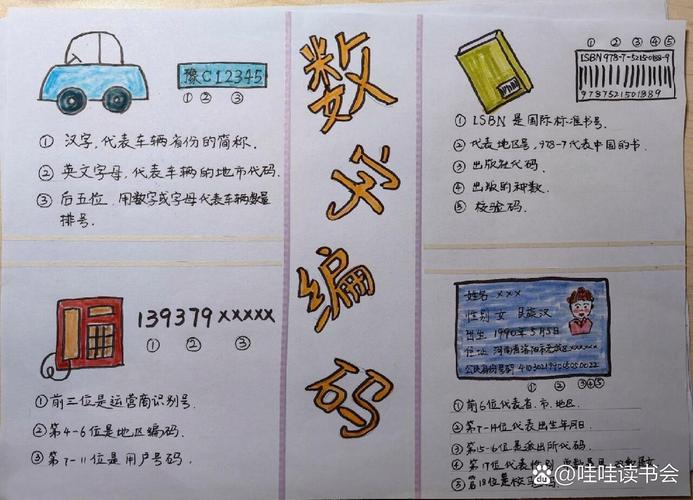 豫C12345
① ② ③
① 汉字,代表车辆省份的简称.
② 英文字母,代表车辆的地市代码.
③ 后五位.用数字或字母代表车辆数量
排号.
数字编码
① ② ③④⑤
ISBN 978-7-5215-0188-9
9787521501889
① ISBN 是国际标准书号.
② 代表地区号,978-7代表中国的书.
③ 出版社代码.
④ 出版的种数.
⑤ 校验码.
139379xxxxx
① ② ③
① 前三位是运营商识别号.
② 第4-6位是地区编码.
③ 第7-11位是用户号码.
姓名 xxx
性别 女 民族汉
出生 1990年5月5日
住址 河南省洛阳市
公民身份号码
① ② ③④⑤
① 前6位代表省.市.地区.
② 第7-14位代表出生年月日.
③ 第15-6位是派出所代码.
④ 第17位代表性别
⑤ 第18位是校
哇哇读书会